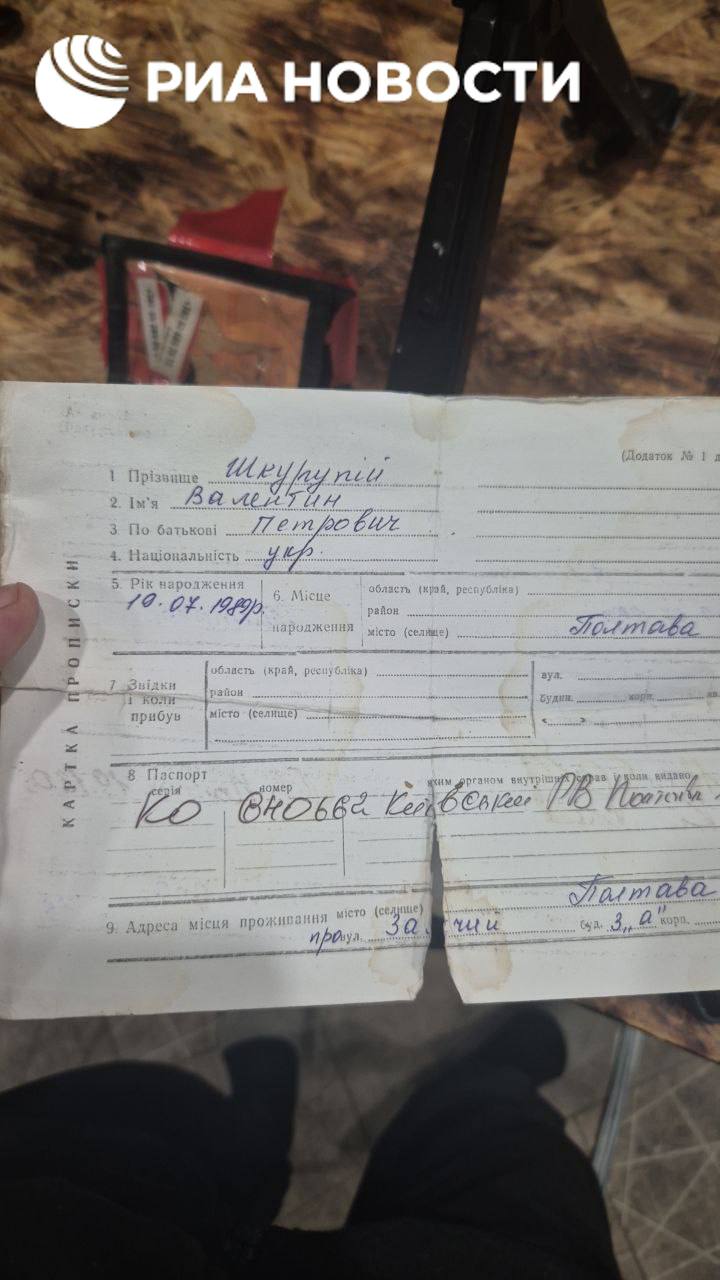 РИА НОВОСТИ
(Додаток № 1 д
1 Прізвище Шкурупій
2. Ім'я Валентин
3 По батькові Петрович
4. Національність укр.
КАРТКА ПРОПИСКИ
5. Рік народження
19.07.1989р.
6. Місце
народження
область (край, республіка)
район
місто (селище) Полтава
7 Звідки
і коли
прибув
область (край, республіка)
район
місто (селище)
вул.
будин. корп. кв
8 Паспорт
серія номер яким органом внутрішніх справ і коли видано
КО Київський РВ
9. Адреса місця проживання місто (селище) Полтава
провул. буд. 3„а" корп.